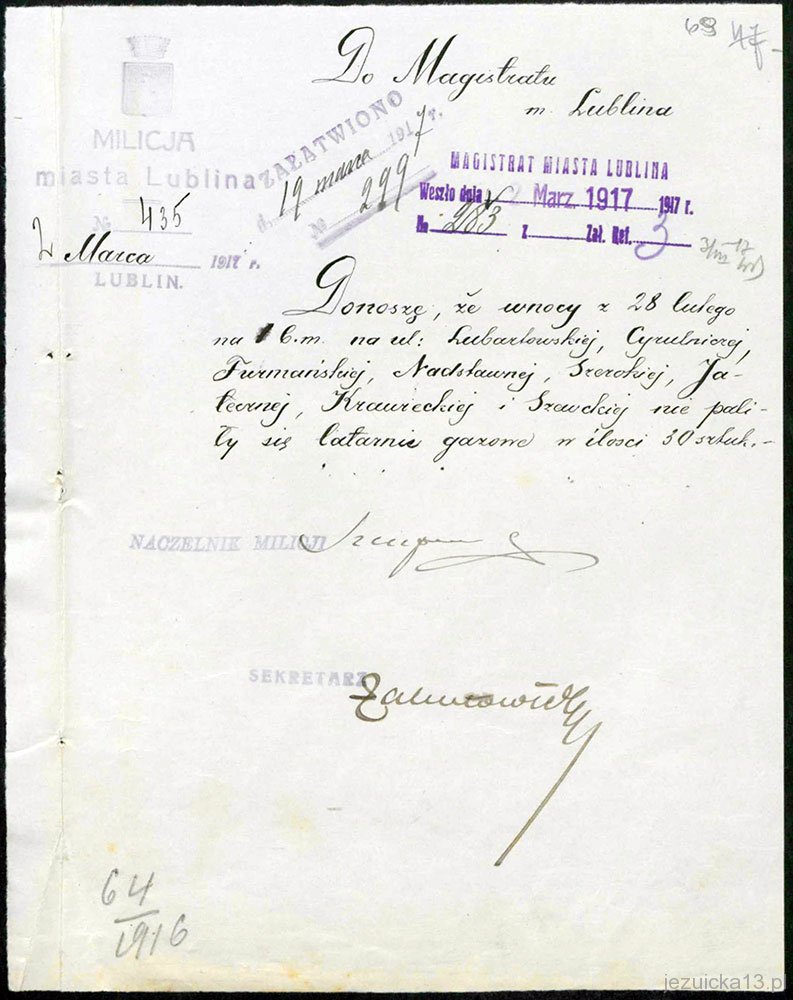 69 47
Do Magistratu
m. Lublina
MILICJA
miasta Lublina
№ 435
2 Marca 1917 r.
LUBLIN.
ZAŁATWIONO
d. 19 marca 1917 r.
№ 299
MAGISTRAT MIASTA LUBLINA
Weszło dnia 2 Marz. 1917 1917 r.
№ 283 z Zał. Ref. 3
Donoszę, że wnocy z 28 lutego
na 1 b.m. na ul: Lubartowskiej, Cyrulniczej,
Furmańskiej, Nadstawnej, Szerokiej, Ja-
tecznej, Krawieckiej i Szewckiej nie pali-
ły się latarnie gazowe w ilosci 30 sztuk.-
NACZELNIK MILICJI
SEKRETARZ
64
1916
jezuicka13.pl